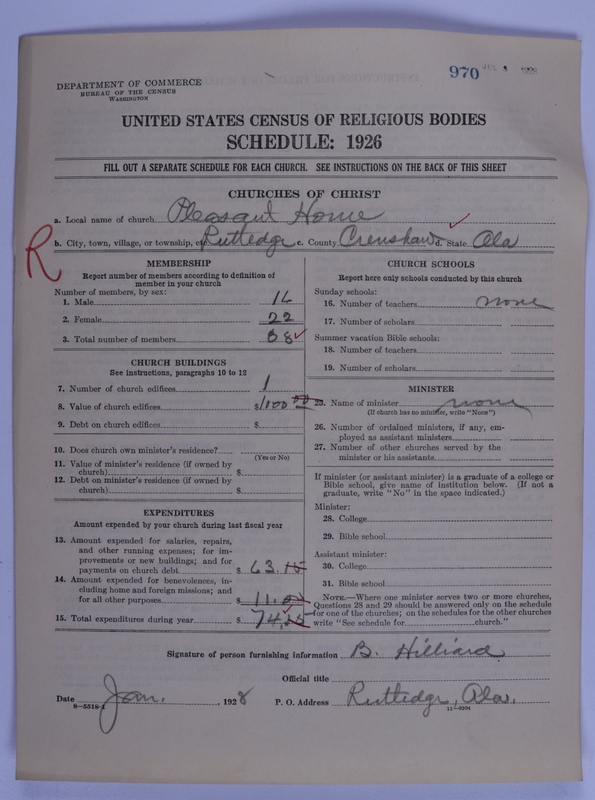 970 JUL
DEPARTMENT OF COMMERCE
BUREAU OF THE CENSUS
WASHINGTON
UNITED STATES CENSUS OF RELIGIOUS BODIES
SCHEDULE: 1926
FILL OUT A SEPARATE SCHEDULE FOR EACH CHURCH. SEE INSTRUCTIONS ON THE BACK OF THIS SHEET
CHURCHES OF CHRIST
a. Local name of church Pleasant Home
R b. City, town, village, or township, etc. Rutledge c. County Crenshaw d. State Ala
MEMBERSHIP
Report number of members according to definition of
member in your church
Number of members, by sex:
1. Male 16
2. Female 22
3. Total number of members 38
CHURCH BUILDINGS
See instructions, paragraphs 10 to 12
7. Number of church edifices 1
8. Value of church edifices $1000 00
9. Debt on church edifices $
10. Does church own minister's residence?
(Yes or No)
11. Value of minister's residence (if owned by
church) $
12. Debt on minister's residence (if owned by
church) $
EXPENDITURES
Amount expended by your church during last fiscal year
13. Amount expended for salaries, repairs,
and other running expenses; for im-
provements or new buildings; and for
payments on church debt $ 63.15
14. Amount expended for benevolences, in-
cluding home and foreign missions; and
for all other purposes $ 11.00
15. Total expenditures during year $ 74.
CHURCH SCHOOLS
Report here only schools conducted by this church
Sunday schools:
16. Number of teachers none
17. Number of scholars
Summer vacation Bible schools:
18. Number of teachers
19. Number of scholars
MINISTER
25. Name of minister none
(If church has no minister, write "None")
26. Number of ordained ministers, if any, em-
ployed as assistant ministers
27. Number of other churches served by the
minister or his assistants
If minister (or assistant minister) is a graduate of a college or
Bible school, give name of institution below. (If not a
graduate, write "No" in the space indicated.)
Minister:
28. College
29. Bible school
Assistant minister:
30. College
31. Bible school
NOTE.—Where one minister serves two or more churches,
Questions 28 and 29 should be answered only on the schedule
for one of the churches; on the schedules for the other churches
write "See schedule for church."
Signature of person furnishing information B. Hilliard
Official title
Date Jan. , 1928 P. O. Address Rutledge, Ala.
8—5518-I 11—9204